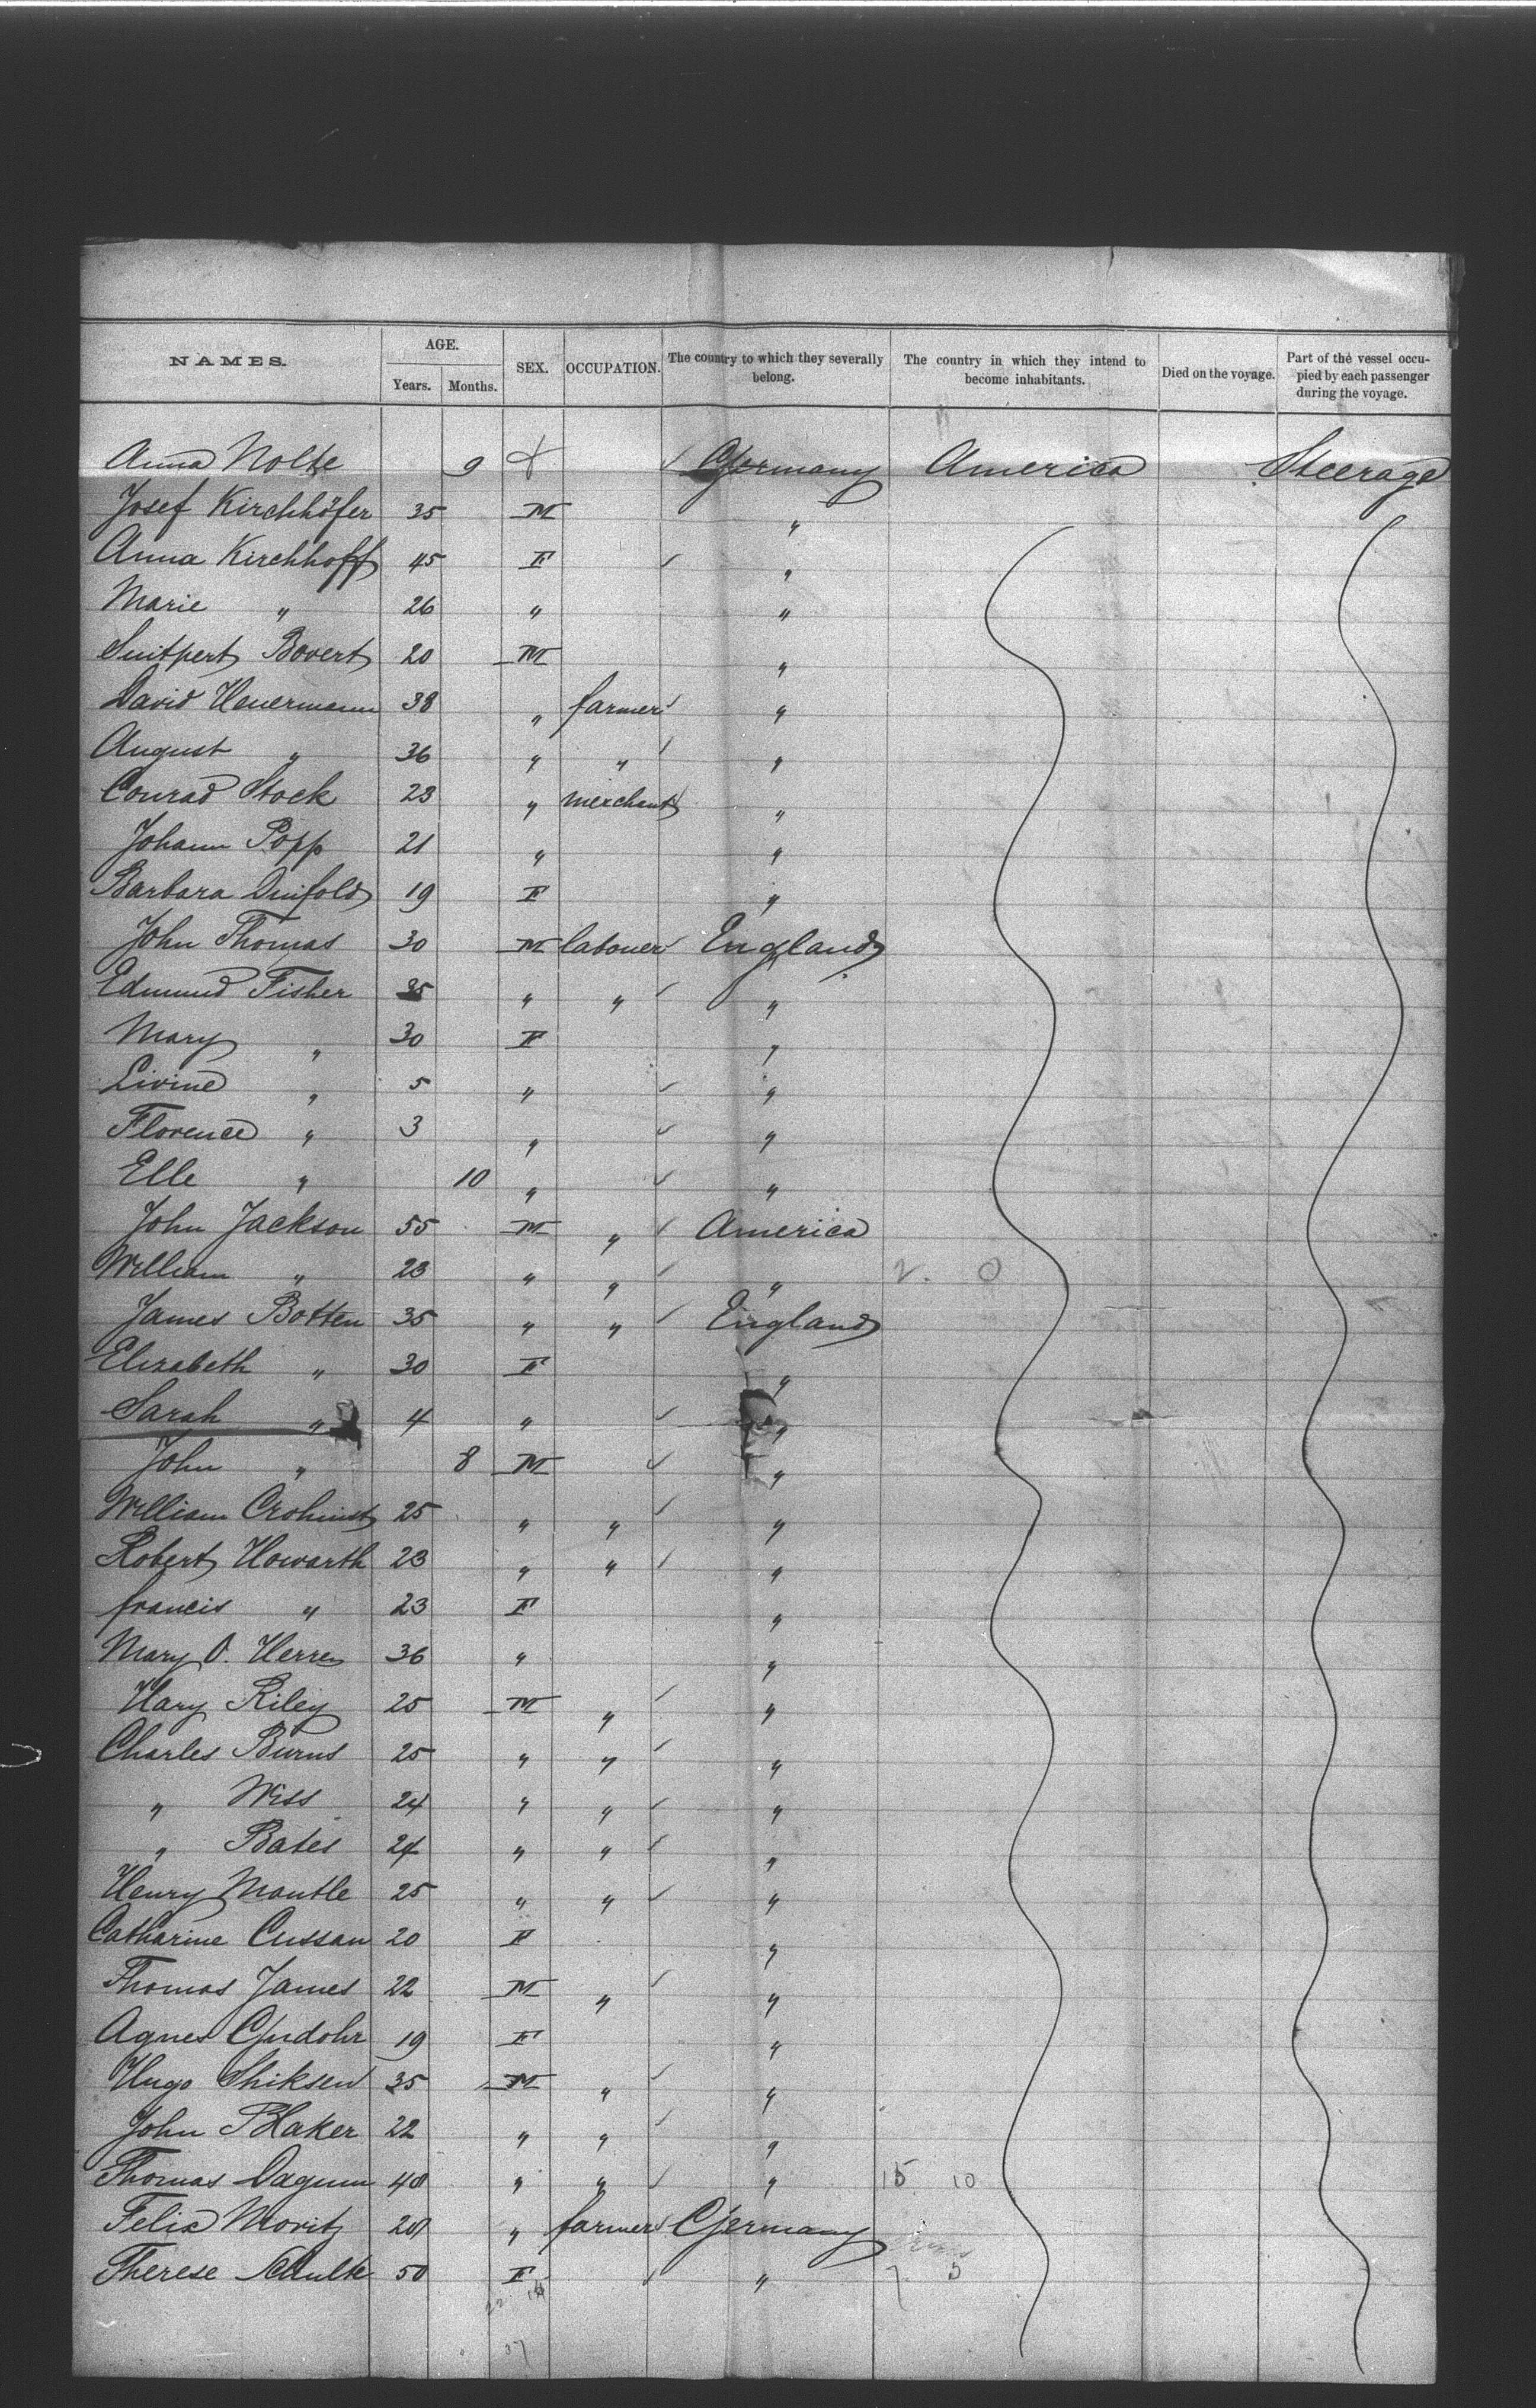 NAMES. AGE. Years. Months. SEX. OCCUPATION. The country to which they severally belong. The country in which they intend to become inhabitants. Died on the voyage. Part of the vessel occupied by each passenger during the voyage.
Anna Nolte 9 Germany America Steerage
Josef Kirchhöfer 35 M "
Anna Kirchhoff 45 F "
Marie " 26 " "
Suitpert Bovert 20 M "
David Heuermann 38 " farmer "
August " 36 " " "
Conrad Stock 23 " merchant "
Johann Popp 21 " "
Barbara 19 F "
John Thomas 30 M labouer England
Edmund Fisher 35 " " "
Mary " 30 F "
Livine " 5 " "
Florence " 3 " "
Elle " 10 " "
John Jackson 55 M " America
William " 23 " " " 2. 0
James Botten 35 " " England
Elizabeth " 30 F "
Sarah " 4 " "
John " 8 M "
William 25 " " "
Robert Howarth 23 " " "
francis " 23 F "
Mary O. Herren 36 " "
Hary Riley 25 M " "
Charles Burns 25 " " "
" Wiss 24 " " "
" Bates 24 " " "
Henry Mantle 25 " " "
Catharine Cussan 20 F "
Thomas James 22 M " "
Agnes Gudohr 19 F "
Hugo Shiksen 35 M " "
John Blaker 22 " " "
Thomas Dagum 40 " " " 15 10
Felix Moritz 20 " farmer Germany
Therese 50 F " 7 5
37